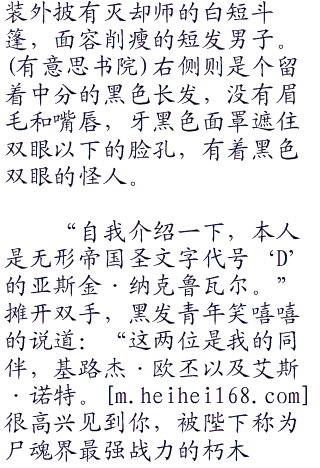 装外披有灭却师的白短斗
篷，面容削瘦的短发男子。
(有意思书院)右侧则是个留
着中分的黑色长发，没有眉
毛和嘴唇，牙黑色面罩遮住
双眼以下的脸孔，有着黑色
双眼的怪人。
“自我介绍一下，本人
是无形帝国圣文字代号‘D’
的亚斯金·纳克鲁瓦尔。”
摊开双手，黑发青年笑嘻嘻
的说道：“这两位是我的同
伴，基路杰·欧丕以及艾斯
·诺特。[m.heihei168.com]
很高兴见到你，被陛下称为
尸魂界最强战力的朽木